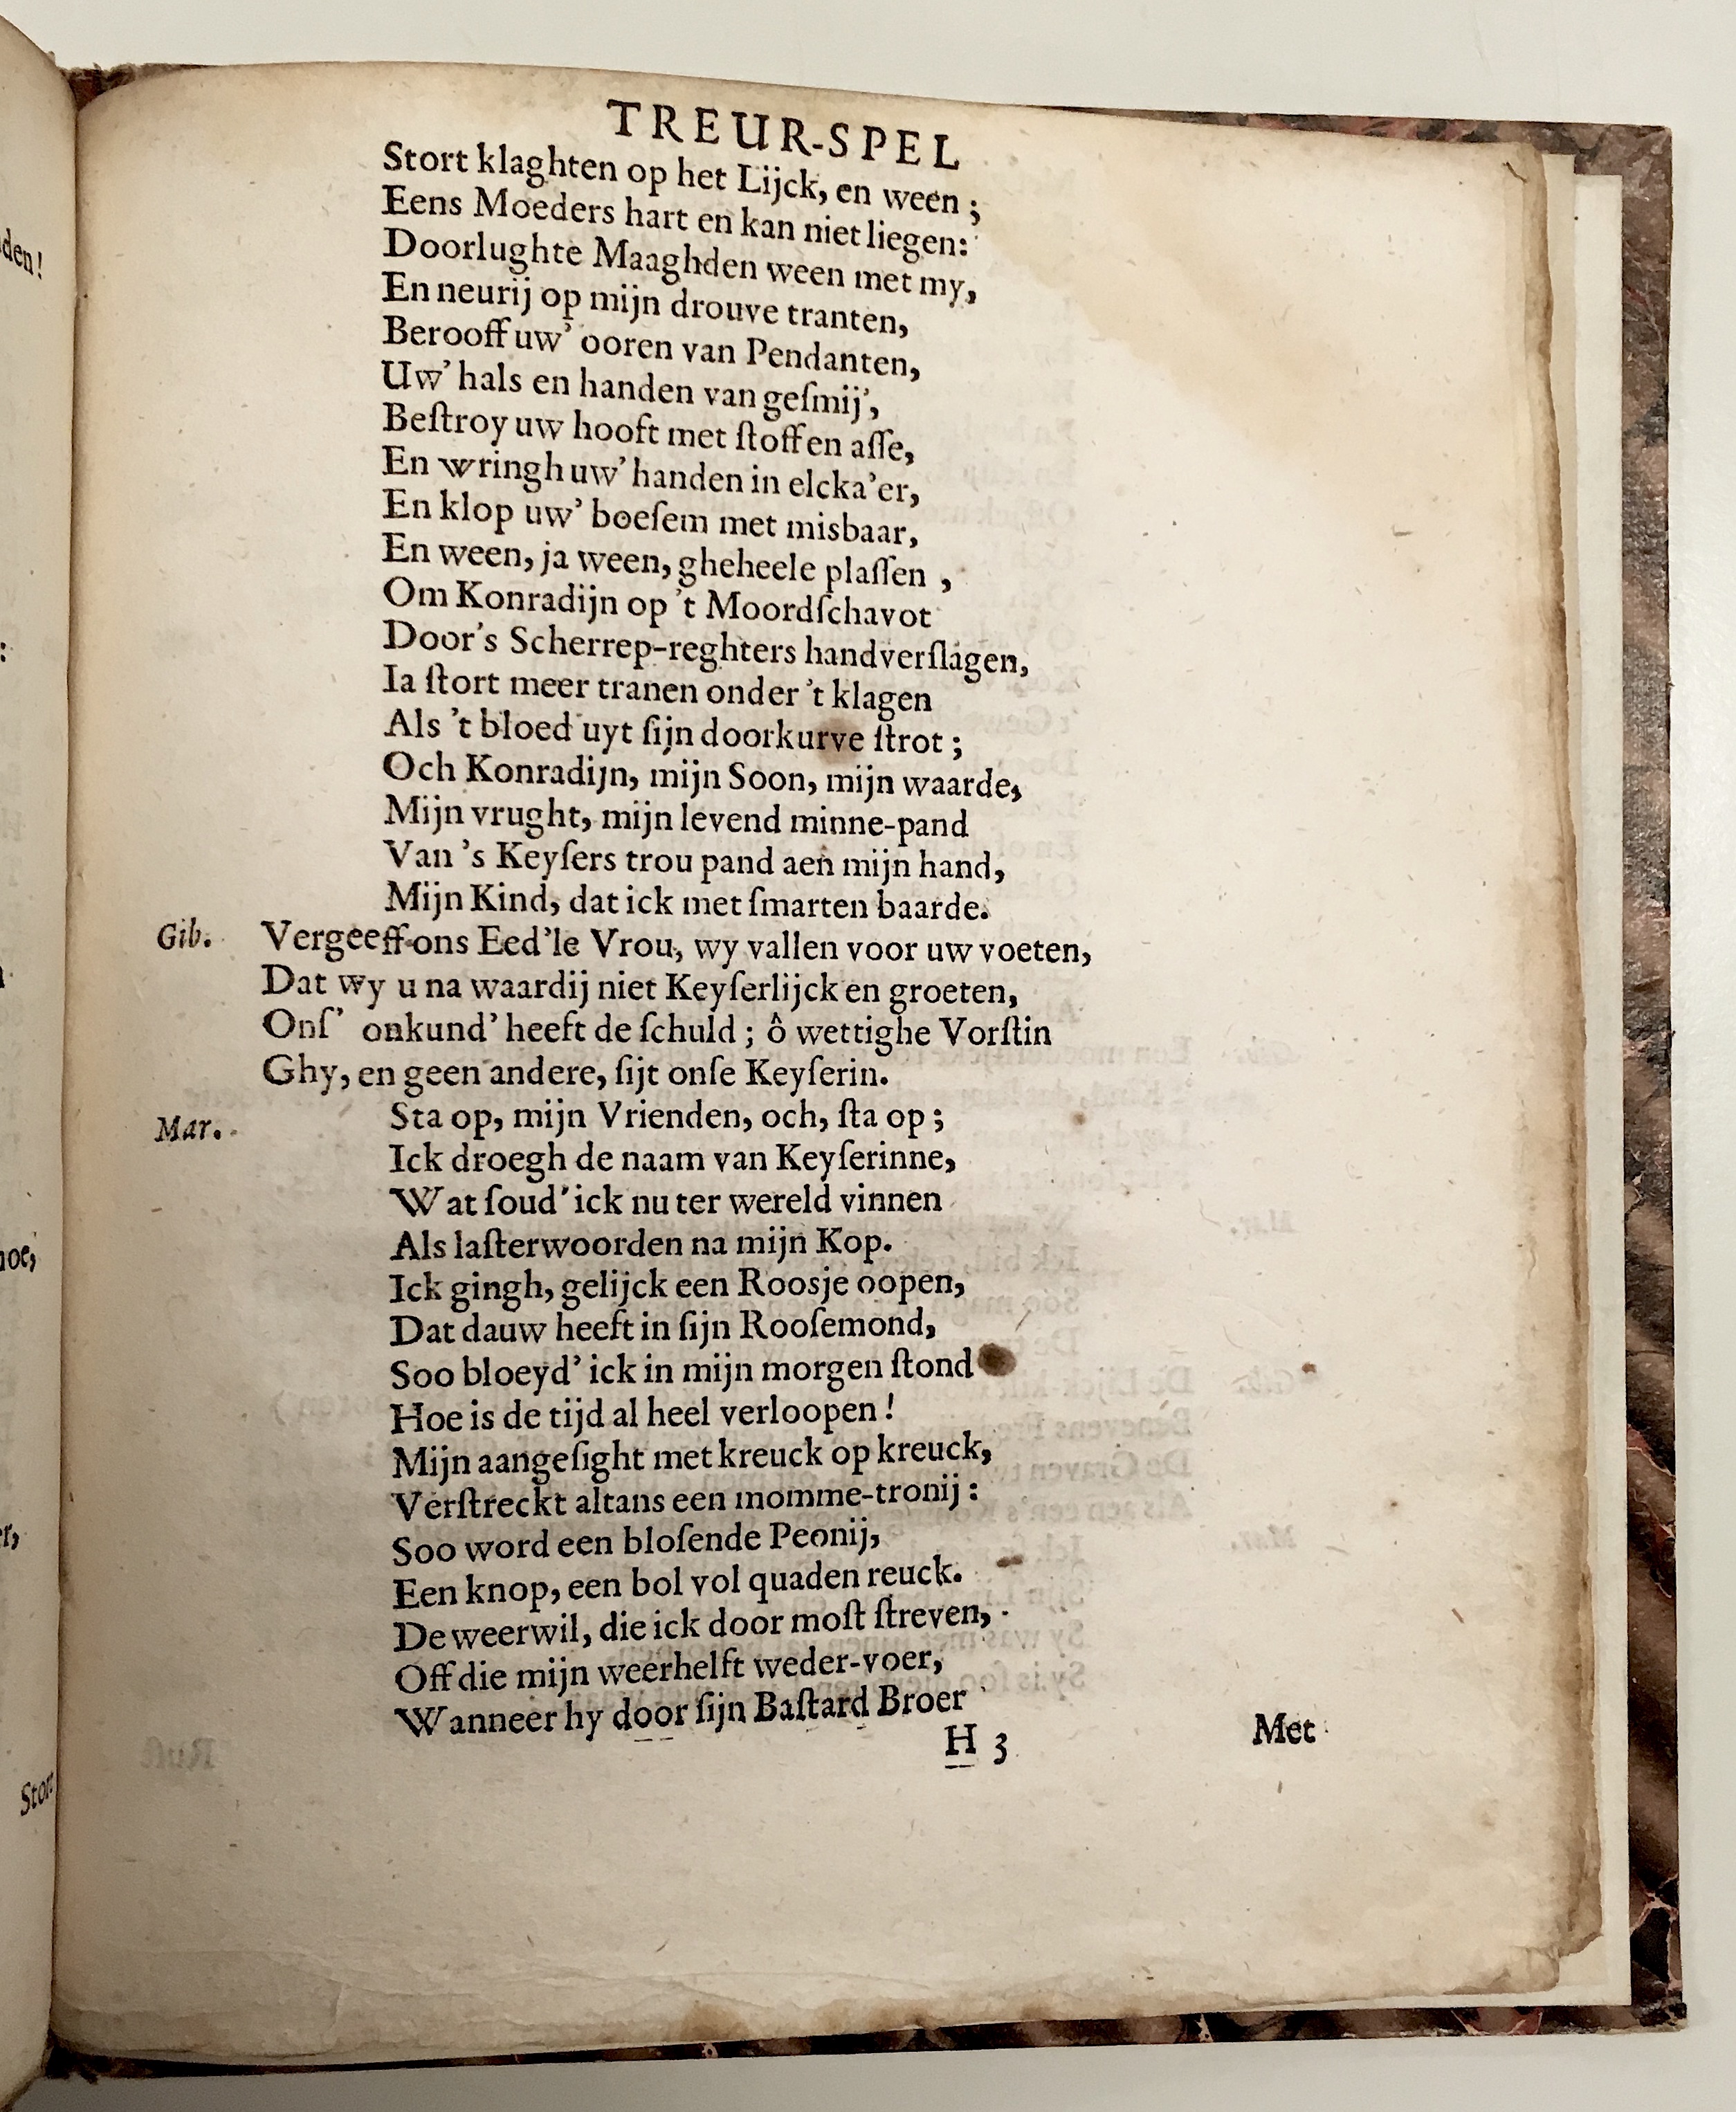 TREUR-SPEL
Stort klaghten op het Lijck, en ween ;
Eens Moeders hart en kan niet liegen:
Doorlughte Maaghden ween met my,
En neurij op mijn drouve tranten,
Berooff uw' ooren van Pendanten,
Uw' hals en handen van geſmij',
Beſtroy uw hooft met ſtoff en aſſe,
En wringh uw' handen in elcka'er,
En klop uw' boeſem met misbaar,
En ween, ja ween, gheheele plaſſen ,
Om Konradijn op 't Moordſchavot
Door's Scherrep-reghters hand verſlagen,
Ia ſtort meer tranen onder 't klagen
Als 't bloed uyt ſijn doorkurve ſtrot ;
Och Konradijn, mijn Soon, mijn waarde,
Mijn vrught, mijn levend minne-pand
Van 's Keyſers trou pand aen mijn hand,
Mijn Kind, dat ick met ſmarten baarde.
Gib. Vergeeff ons Eed'le Vrou, wy vallen voor uw voeten,
Dat wy u na waardij niet Keyſerlijck en groeten,
Onſ' onkund' heeft de ſchuld ; ô wettighe Vorſtin
Ghy, en geen andere, ſijt onſe Keyſerin.
Mar. Sta op, mijn Vrienden, och, ſta op ;
Ick droegh de naam van Keyſerinne,
Wat ſoud' ick nu ter wereld vinnen
Als laſterwoorden na mijn Kop.
Ick gingh, gelijck een Roosje oopen,
Dat dauw heeft in ſijn Rooſemond,
Soo bloeyd' ick in mijn morgen ſtond
Hoe is de tijd al heel verloopen !
Mijn aangeſight met kreuck op kreuck,
Verſtreckt altans een momme-tronij :
Soo word een bloſende Peonij,
Een knop, een bol vol quaden reuck.
De weerwil, die ick door moſt ſtreven,
Off die mijn weerhelft weder-voer,
Wanneer hy door ſijn Baſtard Broer
H 3 Met